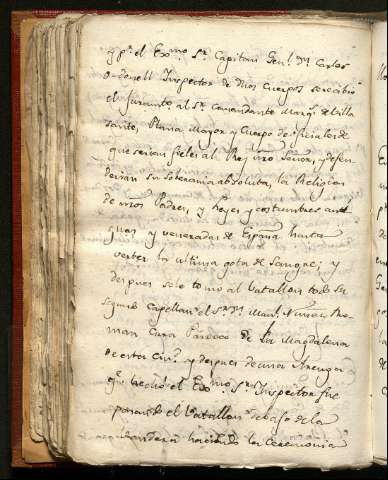 y pr. el Exmo. Sr. Capitan Genl. Dn. Carlos
O-donell Inspector de dhos Cuerpos se recibio
el juramto al Sr. Comandante Marqs. de Villa
Santo, Plana Mayor y Cuerpo de oficiales de
que serian fieles al Rey nro Señor, y defen
derian su soberania absoluta, la Religion
de nros Padres, y Leyes y costumbres anti
guas y veneradas de España hasta
verter la ultima gota de sangre; y
despues solo tomo al Vatallon todo su
segundo Capellan el Sr. Dn. Manl. Ro
man Cura Parroco de la Magdalena
de esta Ciud. y despues de una Arenga
qe. hecho el Exmo. Sr. Inspector fue
pasando el Vatallon debajo de la
bandera haciendo la ceremonia